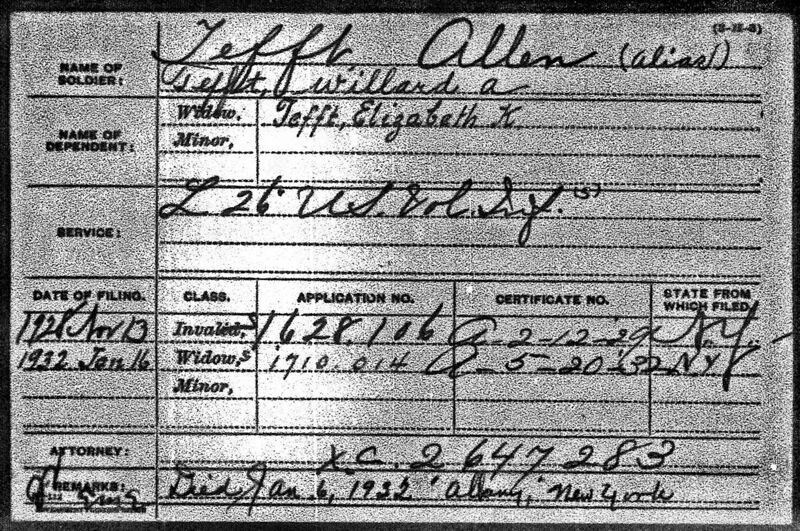 (3-II-3)
NAME OF SOLDIER: Tefft Allen (alias)
Tefft, Willard A
NAME OF DEPENDENT: Widow, Tefft, Elizabeth K.
Minor,
SERVICE: L 26" U.S. Vol. Inf. (S)
DATE OF FILING. CLASS. APPLICATION NO. CERTIFICATE NO. STATE FROM WHICH FILED.
1928 Nov 13 Invalid, S 1.628.106 A-2-12-29 N.Y.
1932 Jan 16 Widow, S 1710.014 A-5-20-32 N.Y.
Minor,
ATTORNEY: XC. 2 647 283
REMARKS: Died Jan. 6, 1932 Albany, New York